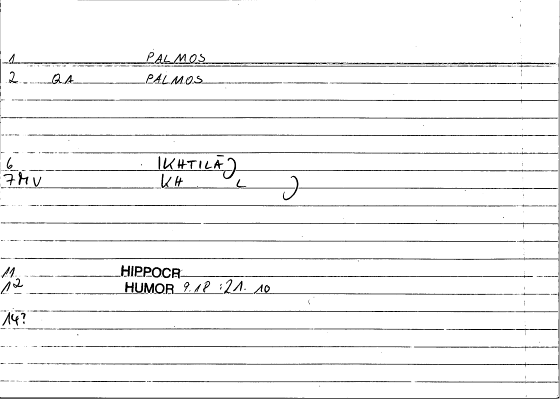 1 PALMOS
2 QA PALMOS
6 IKHTILĀǦ
7MV KH L Ǧ
11 HIPPOCR
12 HUMOR 9.18 :21.10
14?